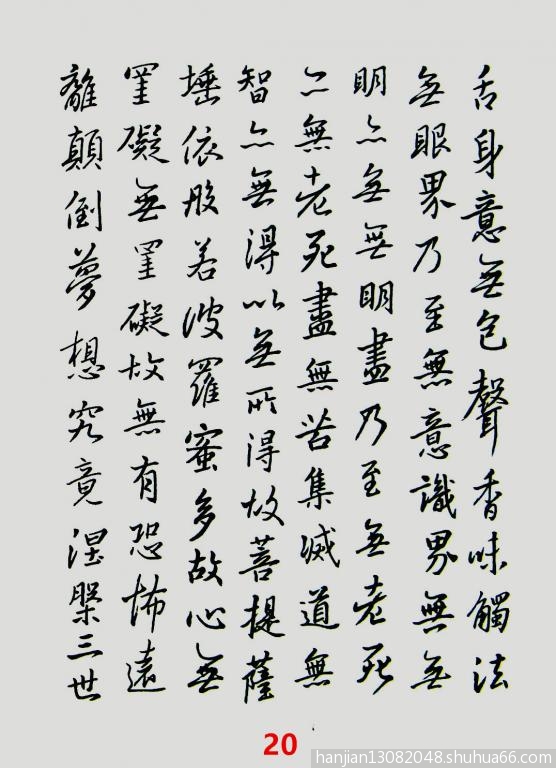 舌身意無色聲香味觸法
無眼界乃至無意識界無無
明亦無無明盡乃至無老死
亦無老死盡無苦集滅道無
智亦無得以無所得故菩提薩
埵依般若波羅蜜多故心無
罣礙無罣礙故無有恐怖遠
離顛倒夢想究竟涅槃三世
20
hanjian13082048.shuhua66.com